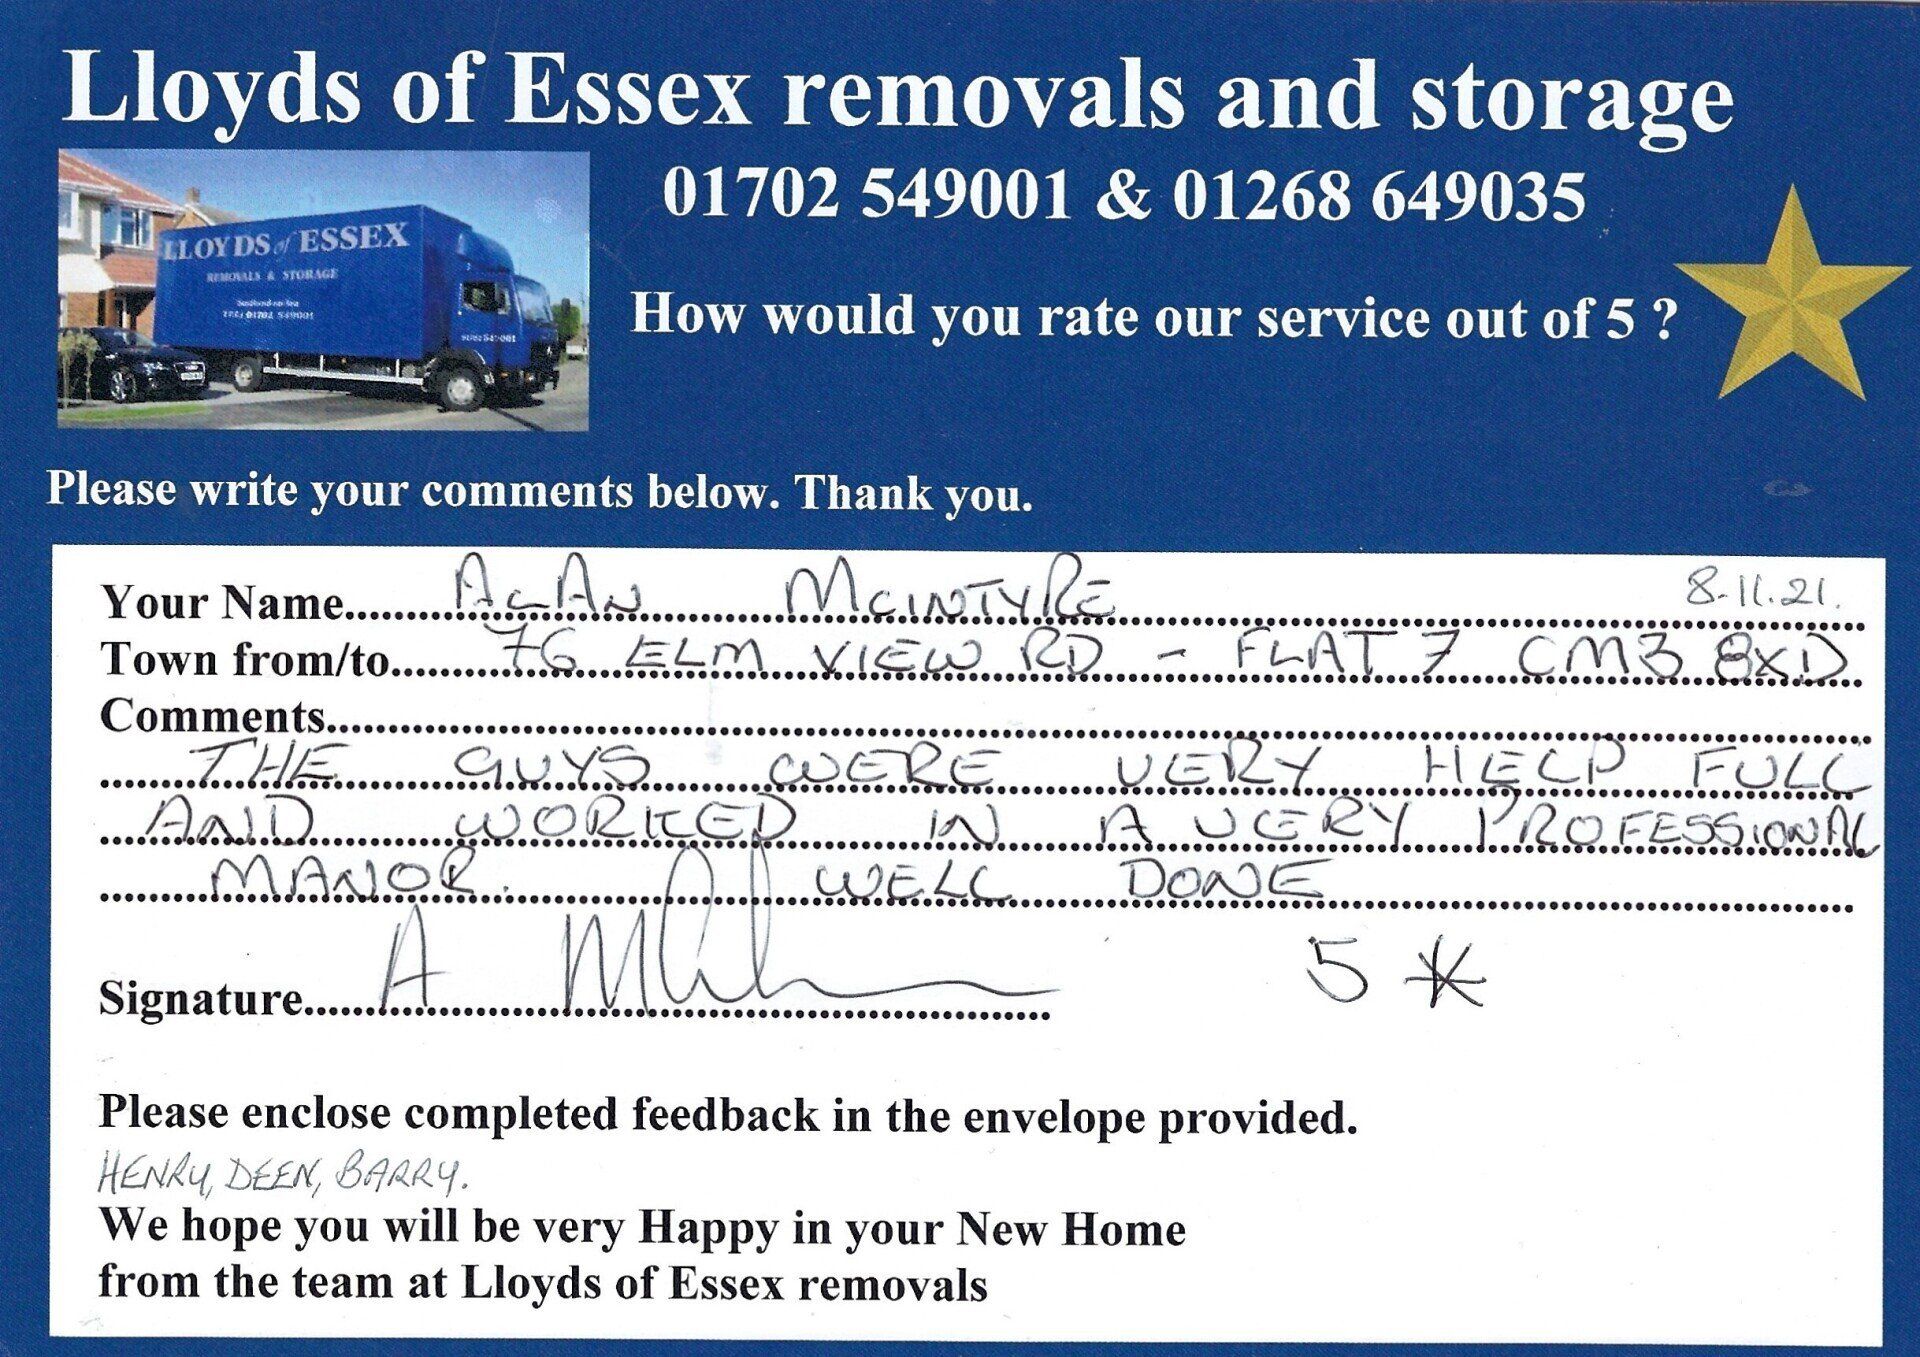 Lloyds of Essex removals and storage
01702 549001 & 01268 649035
LLOYDS of ESSEX
REMOVALS & STORAGE
Southend-on-Sea
TEL: 01702 549001
01702 549001
How would you rate our service out of 5 ?
Please write your comments below. Thank you.
Your Name ALAN MCINTYRE 8.11.21.
Town from/to 76 ELM VIEW RD - FLAT 7 CM3 8XD
Comments
THE GUYS WERE VERY HELP FULL
AND WORKED IN A VERY PROFESSIONAL
MANOR. WELL DONE
Signature A 5 *
Please enclose completed feedback in the envelope provided.
HENRY, DEEN, BARRY.
We hope you will be very Happy in your New Home
from the team at Lloyds of Essex removals